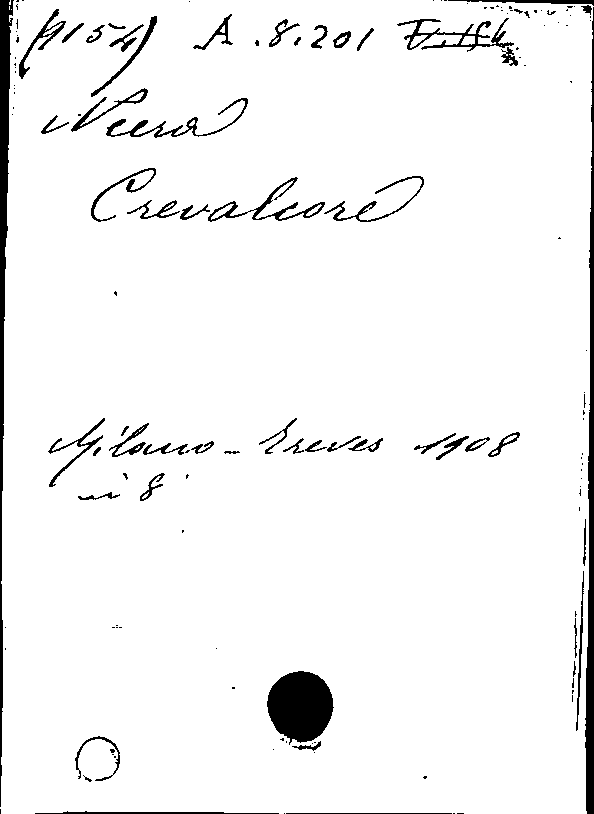 (1154) A.8.201
Neera
Crevalcore
Milano - Treves 1908
in 8°